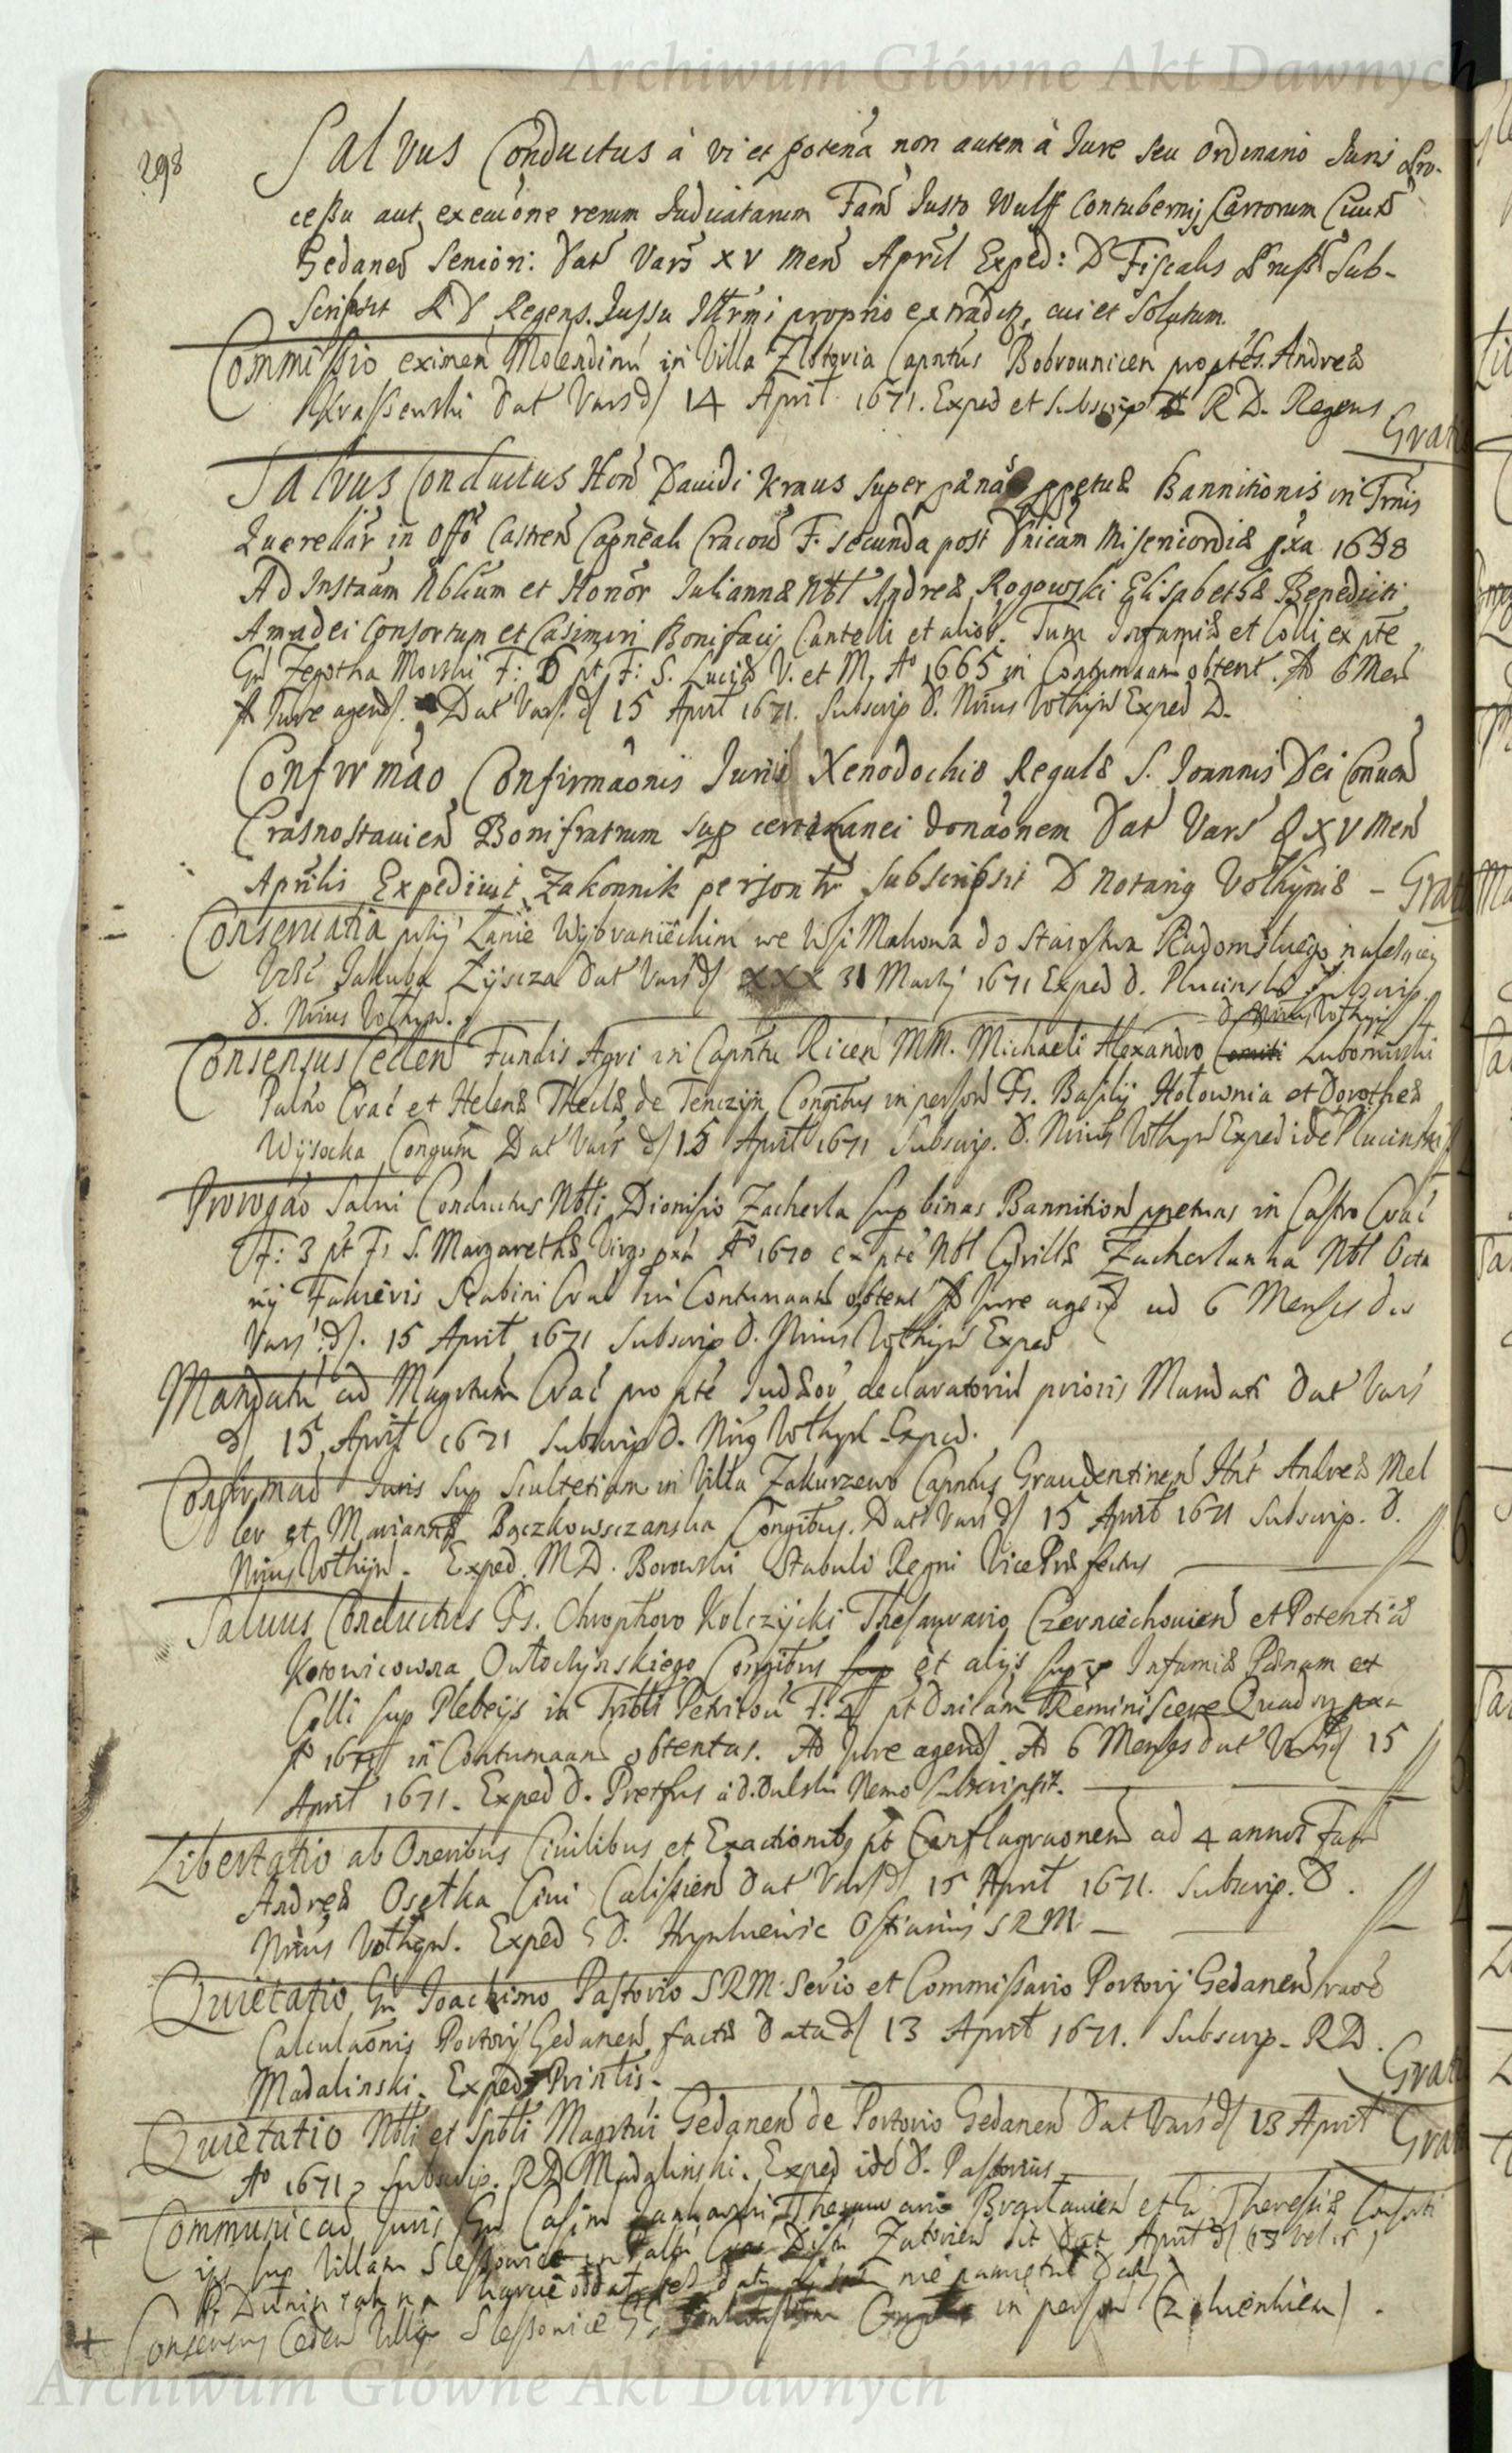 Archiwum Główne Akt Dawnych
298
Salvus Conductus à vi et potena non autem à Iure seu ordinario Iuris Pro-
cessu aut executione rerum Iudicatarum Fam Iusto Wulff Contubernij Sartorum Ciuit
Gedanen Seniori: Dat Vars XV Men April Exped: D Fiscalis Pruss Sub-
scripsit RD Regens. Iussu Illrmi proprio extradit, cui et Solutum.
Commissio eximen Molendinu in Villa Zlotoria Capntus Bobrounicen pro pte Gs. Andreæ
Krassenski Dat Vars d 14 April 1671. Exped et Subscrip RD. Regens
Grat
Salvus Conductus Hon Dauidi Kraus super pænas ppetuæ Bannitionis in Trnis
Querellar in Offo Castren Capneali Cracou F. secunda post Dnicam Misericordiæ pxa 1658
Ad Instaam Nblium et Honor Juliannæ Nbl Andreæ Rogowski Elisabethæ Benedicti
Amadei Consortum et Casimiri Bonifacij Cantelli et alior. Tum Infamiæ et Colli ex pte
Gn Zegotha Morski F: 6 pt F: S. Luciæ V. et M. Ao 1665 in Contumaam obtent. Ad 6 Men
Ad Iure agend. Dat Vars. d 15 April 1671. Subscrip D. Nrius Volhyn Exped D.
Confirmao Confirmaonis Iuris Xenodochio Regulæ S. Ioannis Dei Conuen
Crasnostauien Bonifratrum sup certi Lanei donaonem Dat Vars D XV Men
Aprilis Expediuit Zakonnik personr Subscripsit D Notarius Volhyniæ - Grat
Conseruatia przij Łanie Wybranieckim we Wsi Makowa do Starostwa Radomskiego należącej
Jakuba Zyscza Dat Vars d XXX 31 Martij 1671 Exped D. Plucinski Subscrip.
D. Nrius Volhyn.
D Nrius Volhyn
Consensus Ceden Fundis Agri in Capntu Ricen MM. Michaeli Alexandro Comiti Lubomirski
Palno Crac et Helenæ Theclæ de Tenczyn Congibus in person Gs. Basilij Hołownia et Dorotheæ
Wysocka Congum Dat Vars d 15 April 1671 Subscrip. D. Nrius Volhyn Exped ide Plucinski
Prorogao Salui Conductus Nbli Dionisio Zacherla sup binas Bannition ppetuas in Castro Crac
F: 3 pt F: S. Margarethæ Virg: pxa Ao 1670 ex pte Nbl Cyrillæ Zacherlanka Nbl Octa
Scabini Crac in Contumaam obtent Ad Iure agend ad 6 Menses Dat
Vars: d. 15 April 1671 Subscrip D. Nrius Volhyn Exped
Mandatu ad Magrtum Crac pro pte Iudæor declaratoriu prioris Mandati Dat Vars
d 15 April 1671 Subscrip D. Nrius Volhyn Exped.
Confirmao Iuris sup Scultetiam in Villa Zakurzewo Capntus Graudentinen Hnt Andreæ Mel
ler et Mariannæ Bączkowsczanska Congibus. Dat Vars d 15 April 1671 Subscrip. D.
Nrius Volhyn. Exped. M D. Borowski Stabuli Regni Vice Præfectus
Saluus Conductus Gs. Chrophoro Kolczycki Thesaurario Czerniechouien et Potentiæ
Kotowicowna Owłoczynskiego Congibus sup et alijs sup Infamiæ Pænam et
Colli sup Plebeijs in Tribli Petricou F: 4 pt Dnicam Reminiscere Quadr pxa
Ao 1671 in Contumaam obtentas. Ad Iure agend. Ad 6 Menses Dat Vars d 15
April 1671. Exped D. Pretfus a D. Dulski Nemo Subscripsit.
Libertatio ab Oneribus Ciuilibus et Exactionibus pt Conflagraonem ad 4 annos Fato
Andreæ Osetka Ciui Calissien Dat Vars d 15 April 1671. Subscrip. D.
Nrius Volhyn. Exped G D. Hrynkiewic Ostiarius SRM
Quietatio Gn Joachimo Pastorio SRM Serio et Commissario Portorij Gedanen raoe
Calculaonis Portorij Gedanen factæ Data d 13 April 1671. Subscrip. RD.
Madalinski. Exped Printis.
Grat
Quietatio Nbli et Spbli Magrtui Gedanen de Portorio Gedanen Dat Vars d 13 April
Grat
Ao 1671. Subscrip. RD Madalinski. Exped ide D. Pastorius
Communicao Iuris Gn Casim Jankowski Thesaurario Braclauien et Theresiæ Consorti
ius sup Villam Slessowice in Palu Crac Distr Zatorien sit Dat April d 13 vel
P. Dunin tak na karcie oddał, bez daty nie pamiętał Daty
Consensus Ceden Villa Slessowice in person Zielienkien).
Archiwum Główne Akt Dawnych